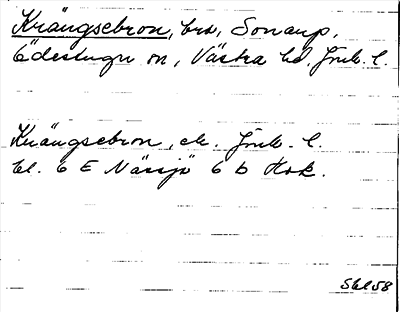 Krängsebron, bro, Sonarp,
Ödestugu sn, Västra hd, Jönk. l.
Krängsebron, ek. Jönk. l.
bl. 6 E Nässjö 6 b Hok.
Sbl 58